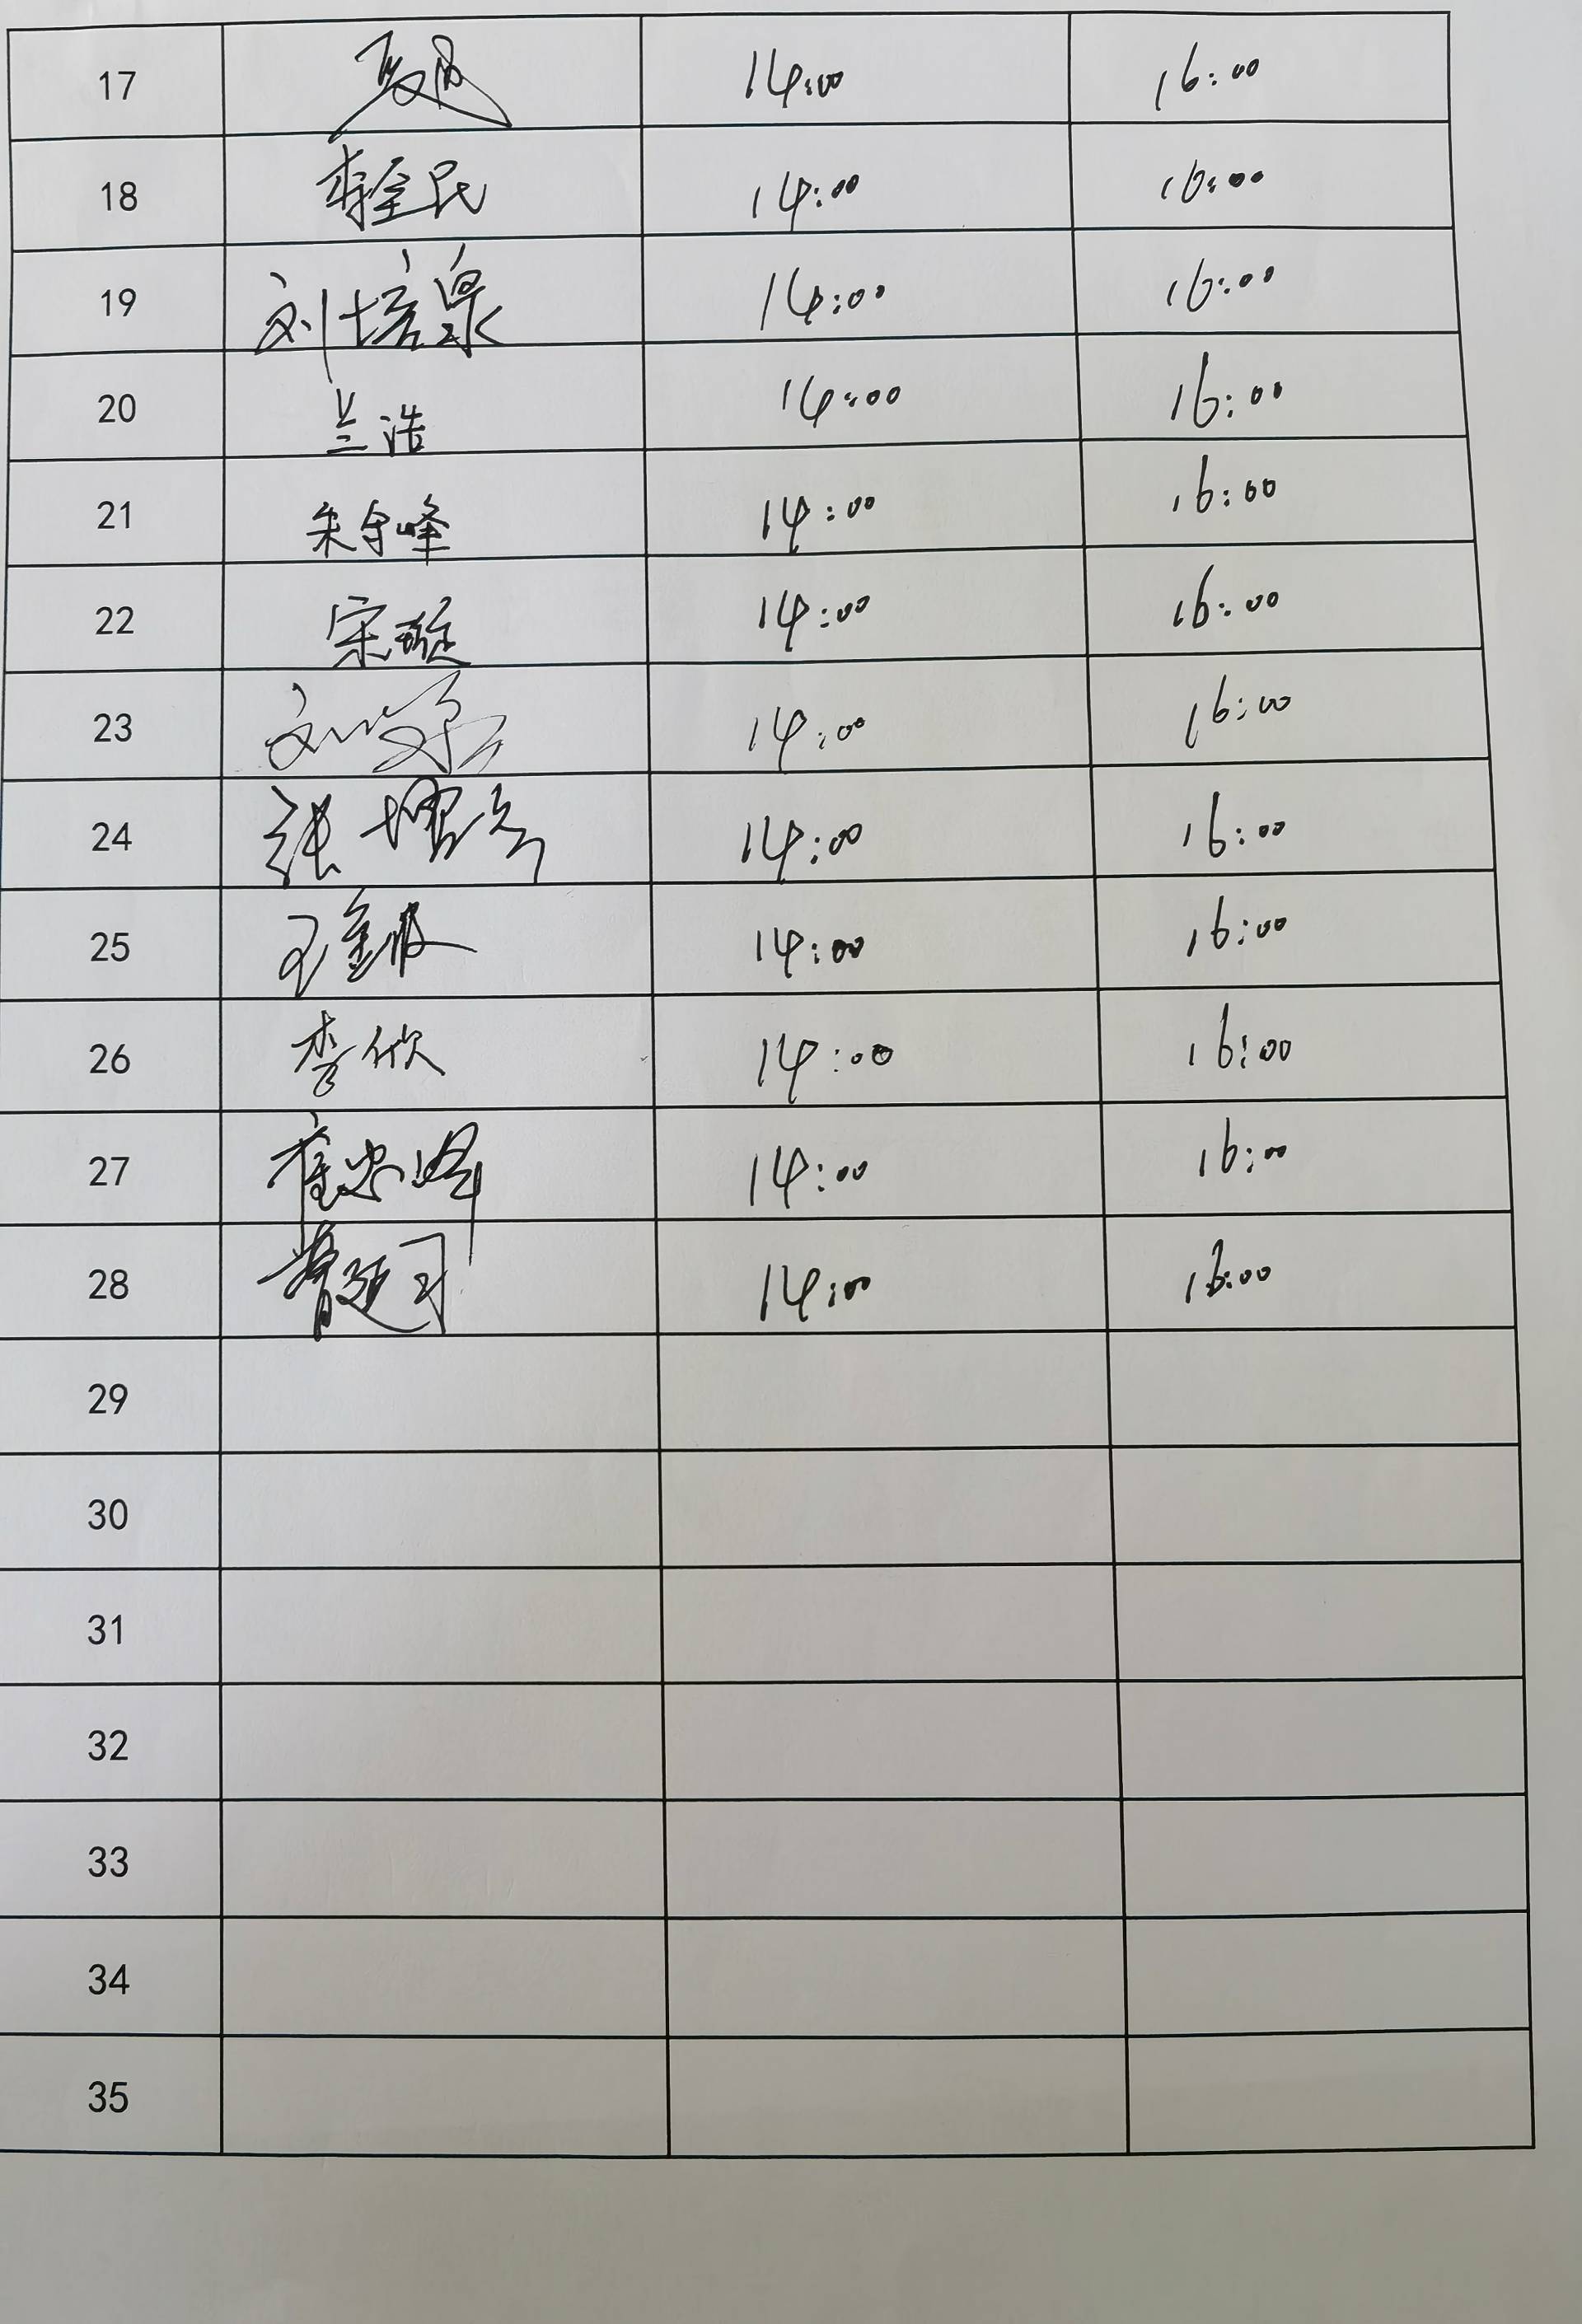 17 14:00 16:00
18 李全民 14:00 16:00
19 刘培泉 14:00 16:00
20 兰浩 14:00 16:00
21 朱守峰 14:00 16:00
22 宋璇 14:00 16:00
23 刘 14:00 16:00
24 张 14:00 16:00
25 王 14:00 16:00
26 李欣 14:00 16:00
27 崔忠峰 14:00 16:00
28 14:00 16:00
29
30
31
32
33
34
35